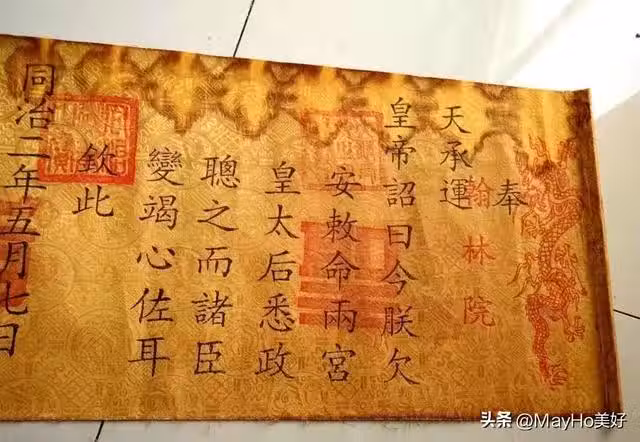 奉
天承運
皇帝詔曰今朕欠
安敕命兩宮
皇太后悉政
聰之而諸臣
變竭心佐耳
欽此
同治二年五月七日
翰林院
头条 @MayHo美好